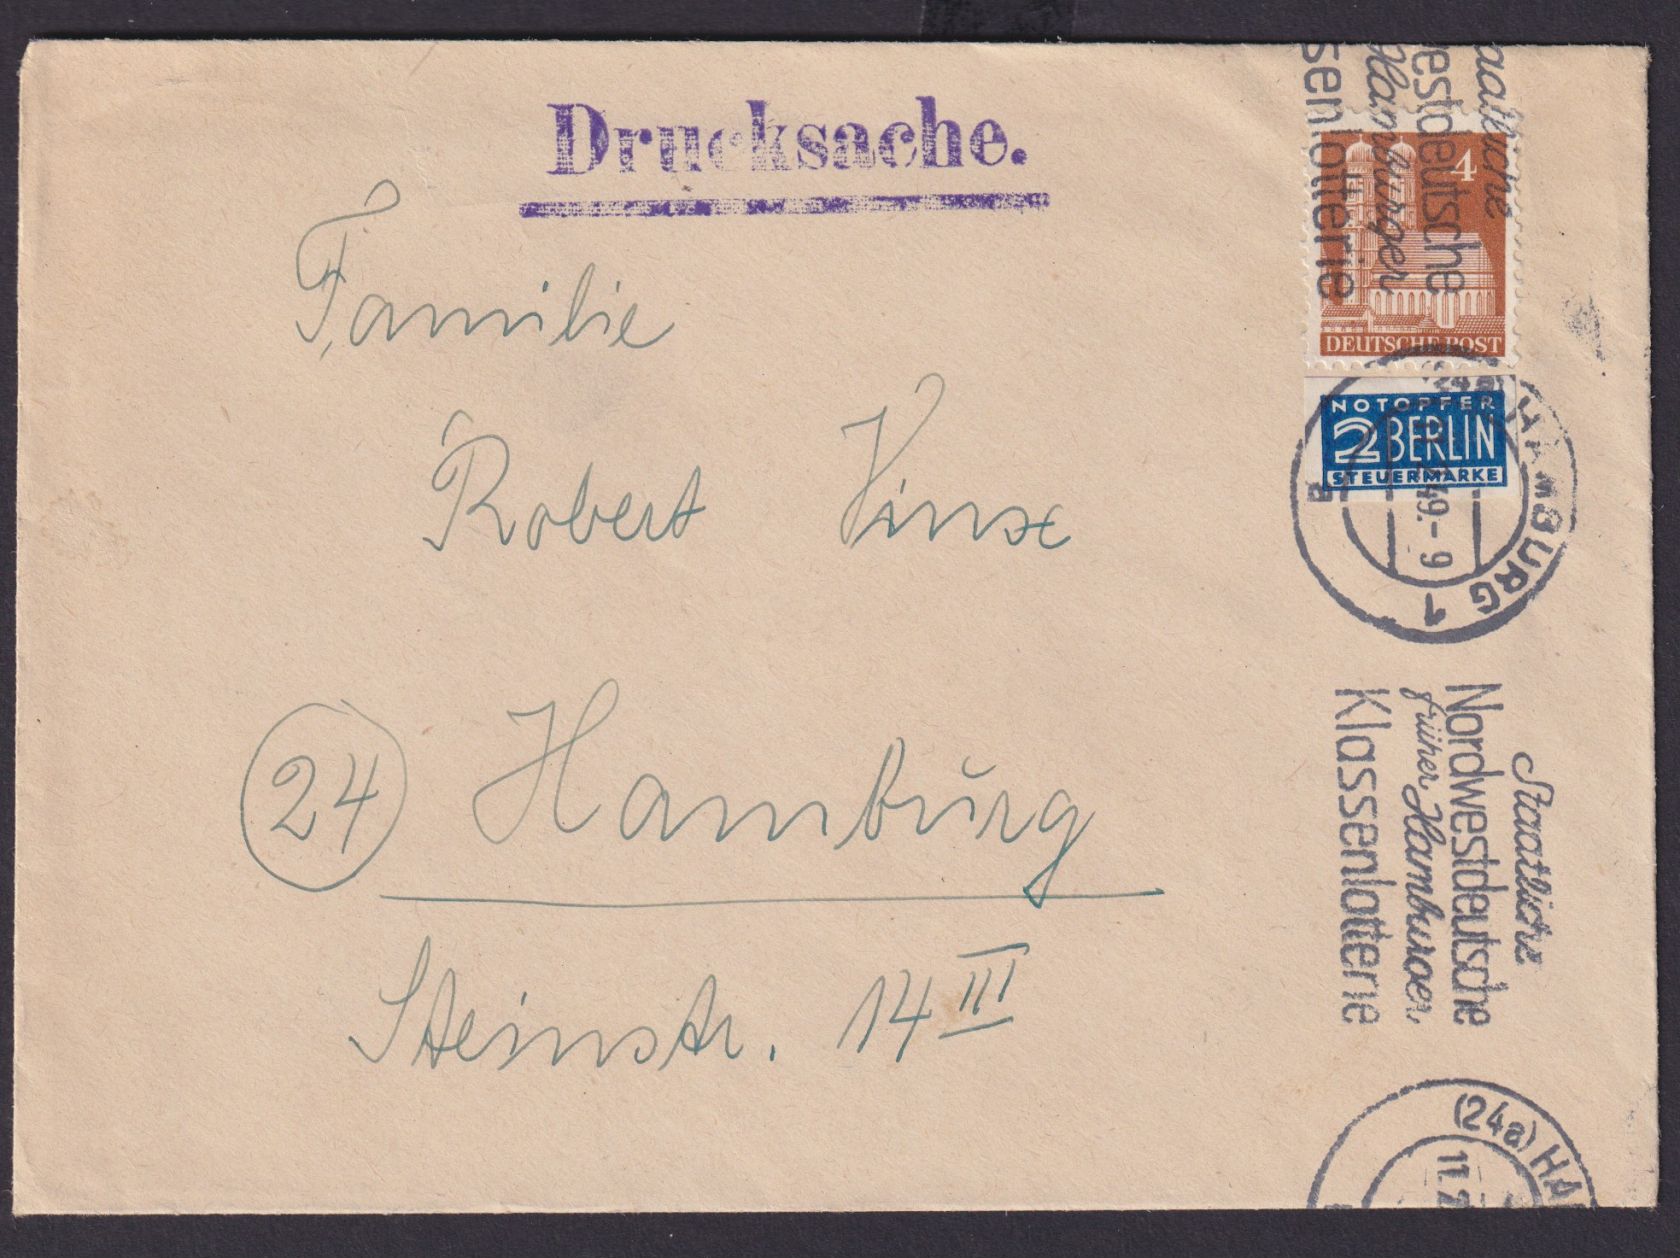 Drucksache.
Familie
Robert Kinse
24 Hamburg
Steinstr. 14 III
4
DEUTSCHE POST
NOTOPFER
2 BERLIN
STEUERMARKE
aatliche
estdeutsche
Hamburger
senlotterie
(24a) HAMBURG 1
49.-9
Staatliche
Nordwestdeutsche
früher Hamburger
Klassenlotterie
(24a) HA
11.2